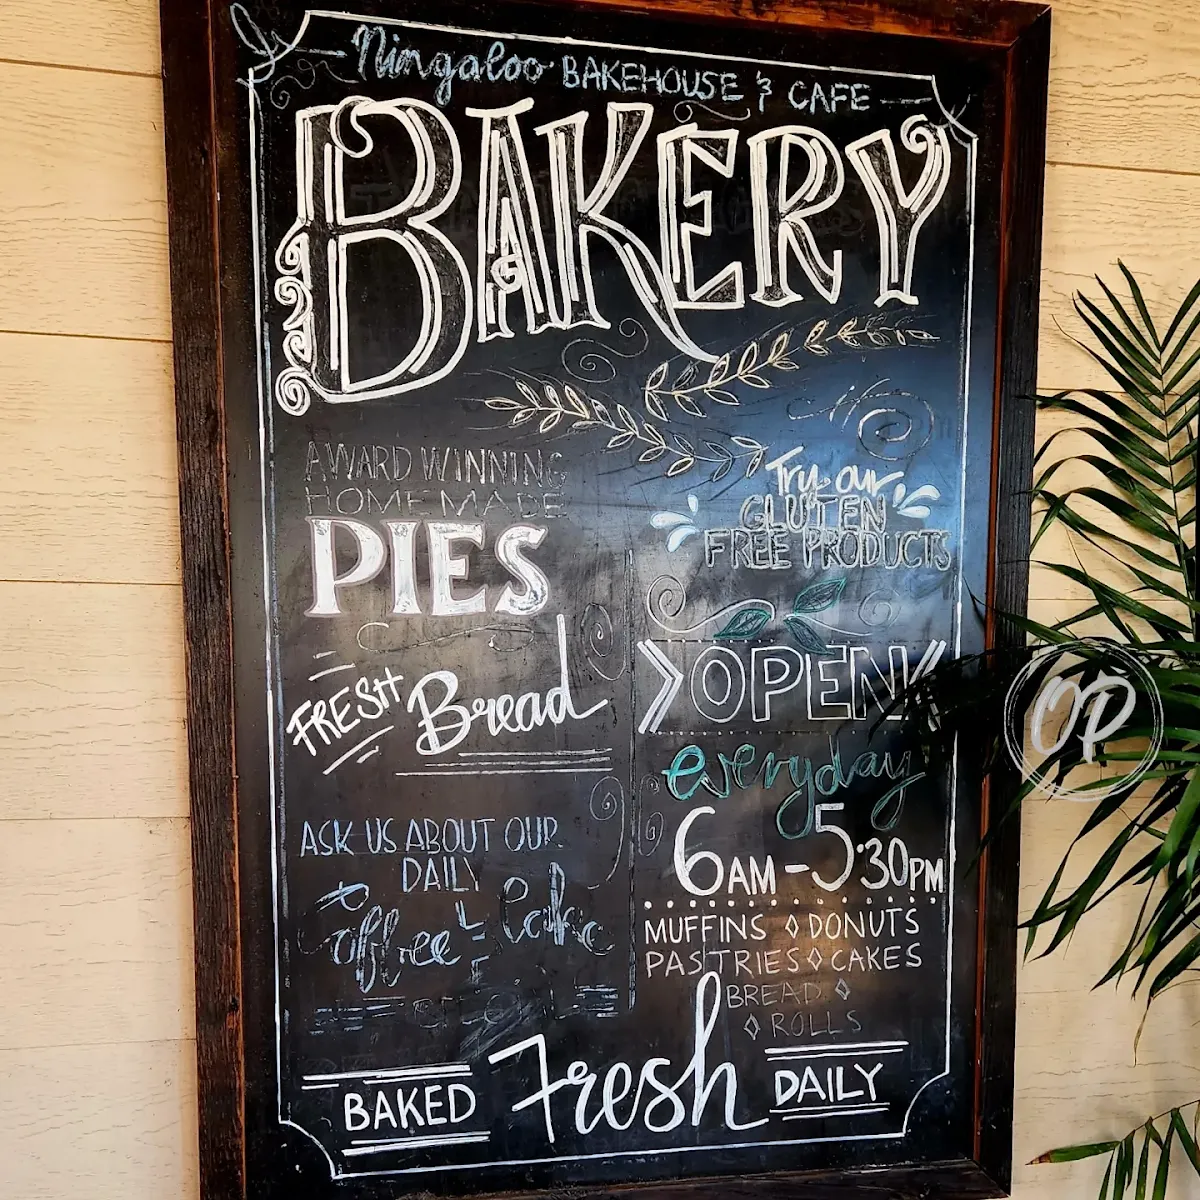 Ningaloo BAKEHOUSE & CAFE
BAKERY
AWARD WINNING
HOMEMADE
PIES
FRESH Bread
ASK US ABOUT OUR
DAILY
Coffee & Cake
Try our
GLUTEN
FREE PRODUCTS
OPEN
everyday
6AM - 5:30PM
MUFFINS ◊ DONUTS
PASTRIES ◊ CAKES
BREAD ◊
◊ ROLLS
BAKED Fresh DAILY
OP